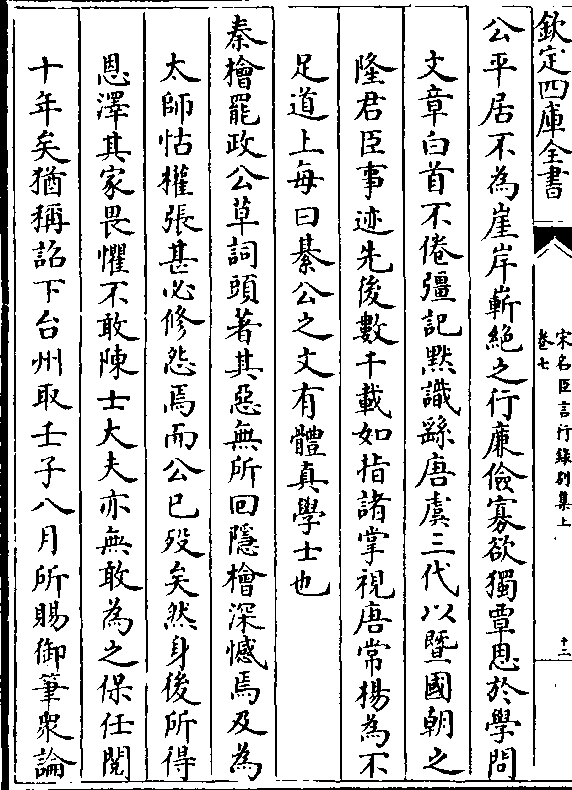 欽定四庫全書
宋名臣言行録别集上
卷七
十二
公平居不為崖岸嶄絶之行廉儉寡欲獨覃思於學問
文章白首不倦彊記黙識繇唐虞三代以暨國朝之
隆君臣事迹先後數千載如指諸掌視唐常楊為不
足道上每曰綦公之文有體真學士也
秦檜罷政公草詞頭著其惡無所回隱檜深憾焉及為
太師怙權張甚必修怨焉而公已殁矣然身後所得
恩澤其家畏懼不敢陳士大夫亦無敢為之保任閲
十年矣猶稱詔下台州取壬子八月所賜御筆衆論